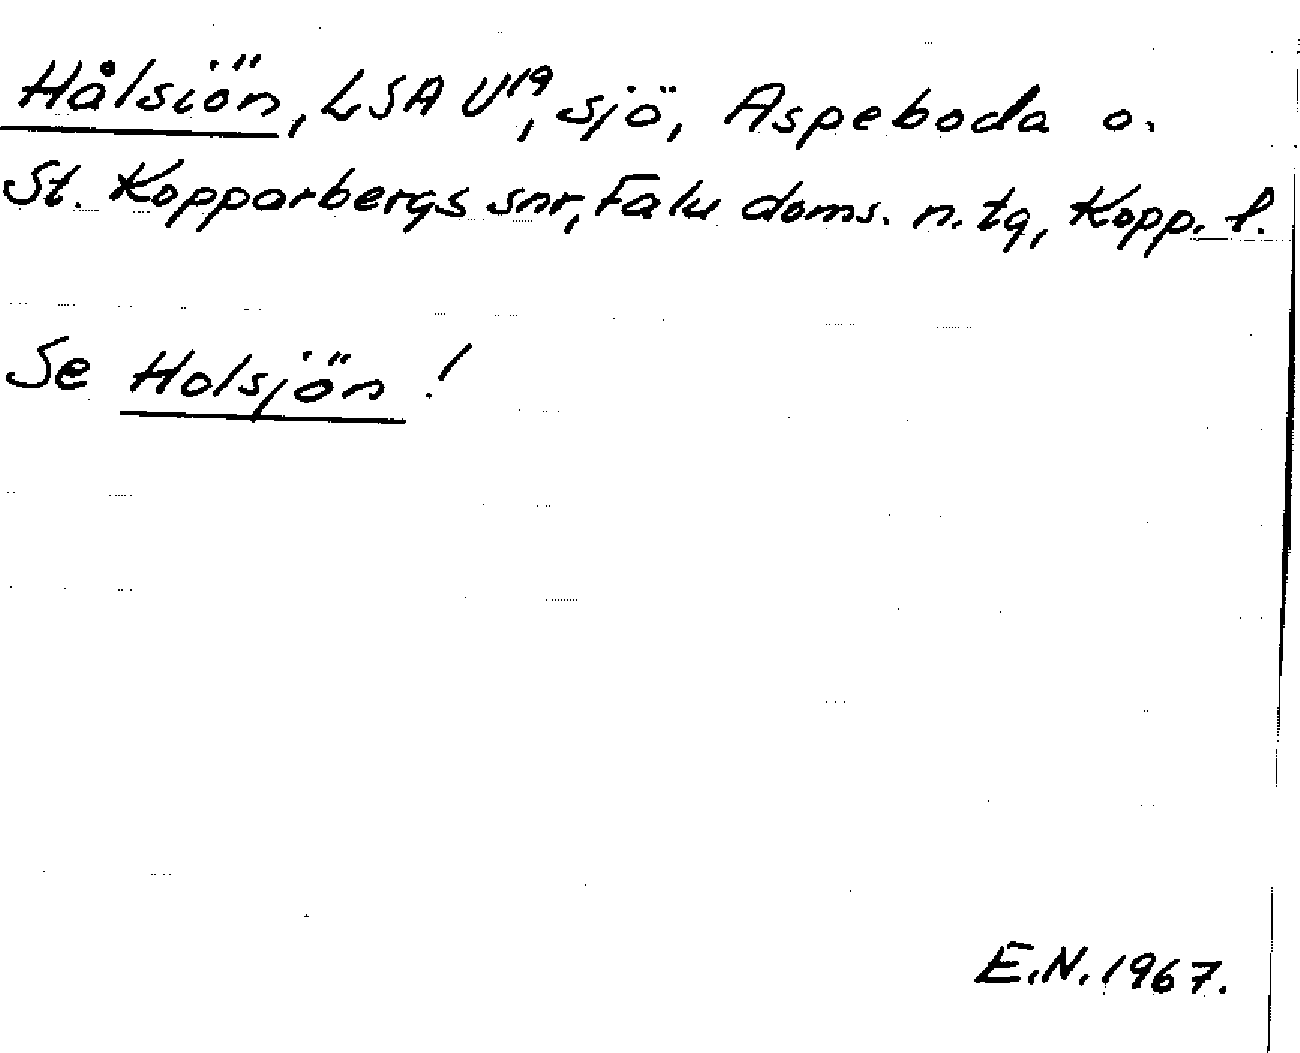 Hålsiön, LSA U19, sjö, Aspeboda o.
St. Kopparbergs snr, Falu doms. n. tg, Kopp. l.
Se Holsjön!
E.N. 1967.